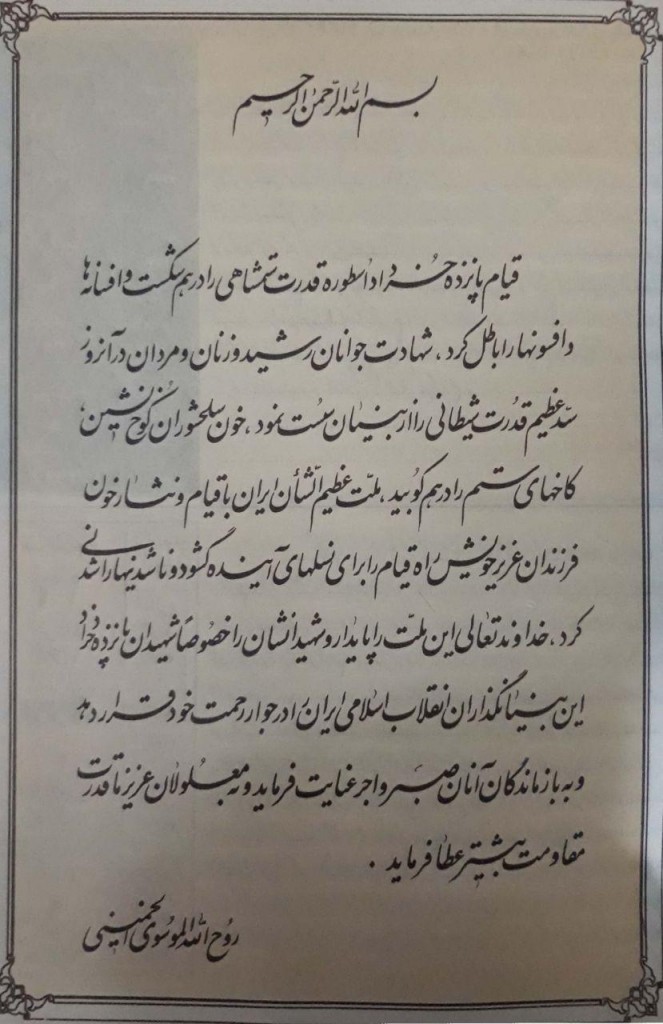 بسم الله الرحمن الرحیم
قیام پانزده خرداد اسطوره قدرت ستمشاهی را در هم شکست و افسانه‌ها
و افسونها را باطل کرد، شهادت جوانان رشید و زنان و مردان در آنروز
سدّ عظیم قدرت شیطانی را از بنیان سست نمود، خون سلحشوران کوخ نشین،
کاخهای ستم را در هم کوبید، ملّت عظیم الشّأن ایران با قیام و نثار خون
فرزندان عزیز خویش راه قیام را برای نسلهای آینده گشود و ناشدنیها را شدنی
کرد، خداوند تعالی این ملّت را پایدار و شهیدانشان را خصوصاً شهیدان پانزده خرداد
این بنیانگذاران انقلاب اسلامی ایران را در جوار رحمت خود قرار دهد
و به بازماندگان آنان صبر و اجر عنایت فرماید و به معلولان عزیز ما قدرت
مقاومت بیشتر عطا فرماید.
روح الله الموسوی الخمینی